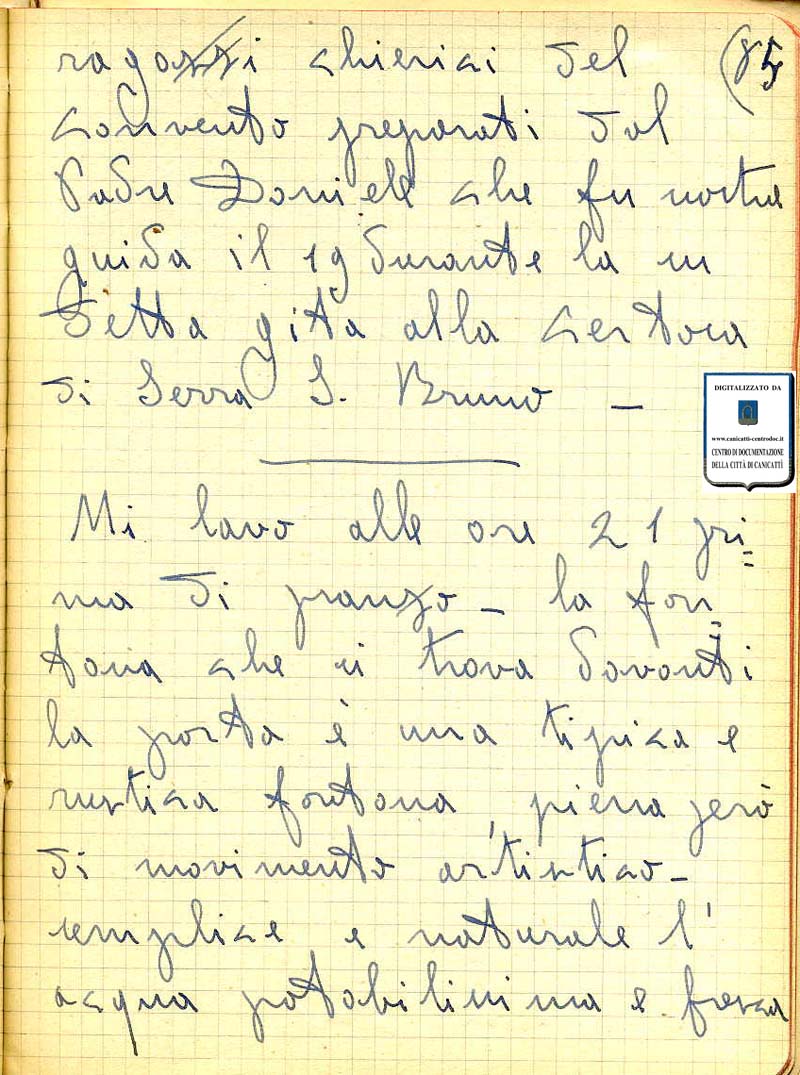 ragazzi chierici del (85
convento preparati dal
Padre Daniele che fu nostra
guida il 19 durante la su
detta gita alla certosa
di Serra S. Bruno –
DIGITALIZZATO DA
www.canicatti-centrodoc.it
CENTRO DI DOCUMENTAZIONE
DELLA CITTÀ DI CANICATTÌ
Mi lavo alle ore 21 pri=
ma di pranzo – la fon=
tana che si trova davanti
la porta è una tipica e
rustica fontana, piena però
di movimento artistico –
semplice e naturale l'
acqua potabilissima e fresca